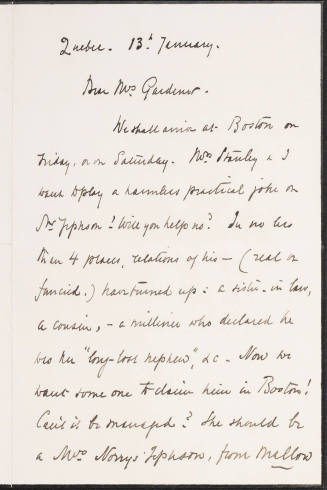 Quebec. 13th January.
Dear Mrs Gardener.
We shall arrive at Boston on
Friday, or on Saturday. Mrs Stanley & I
want to play a harmless practical joke on
Mr Jephson! Will you help us? In no less
than 4 places, relations of his — (real or
fancied.) have turned up: a sister-in-law,
a cousin, — a milliner who declared he
was her "long-lost nephew", &c — Now we
want some one to claim him in Boston!
Can it be managed? She should be
a Mrs Norrys Jephson, from Mallow